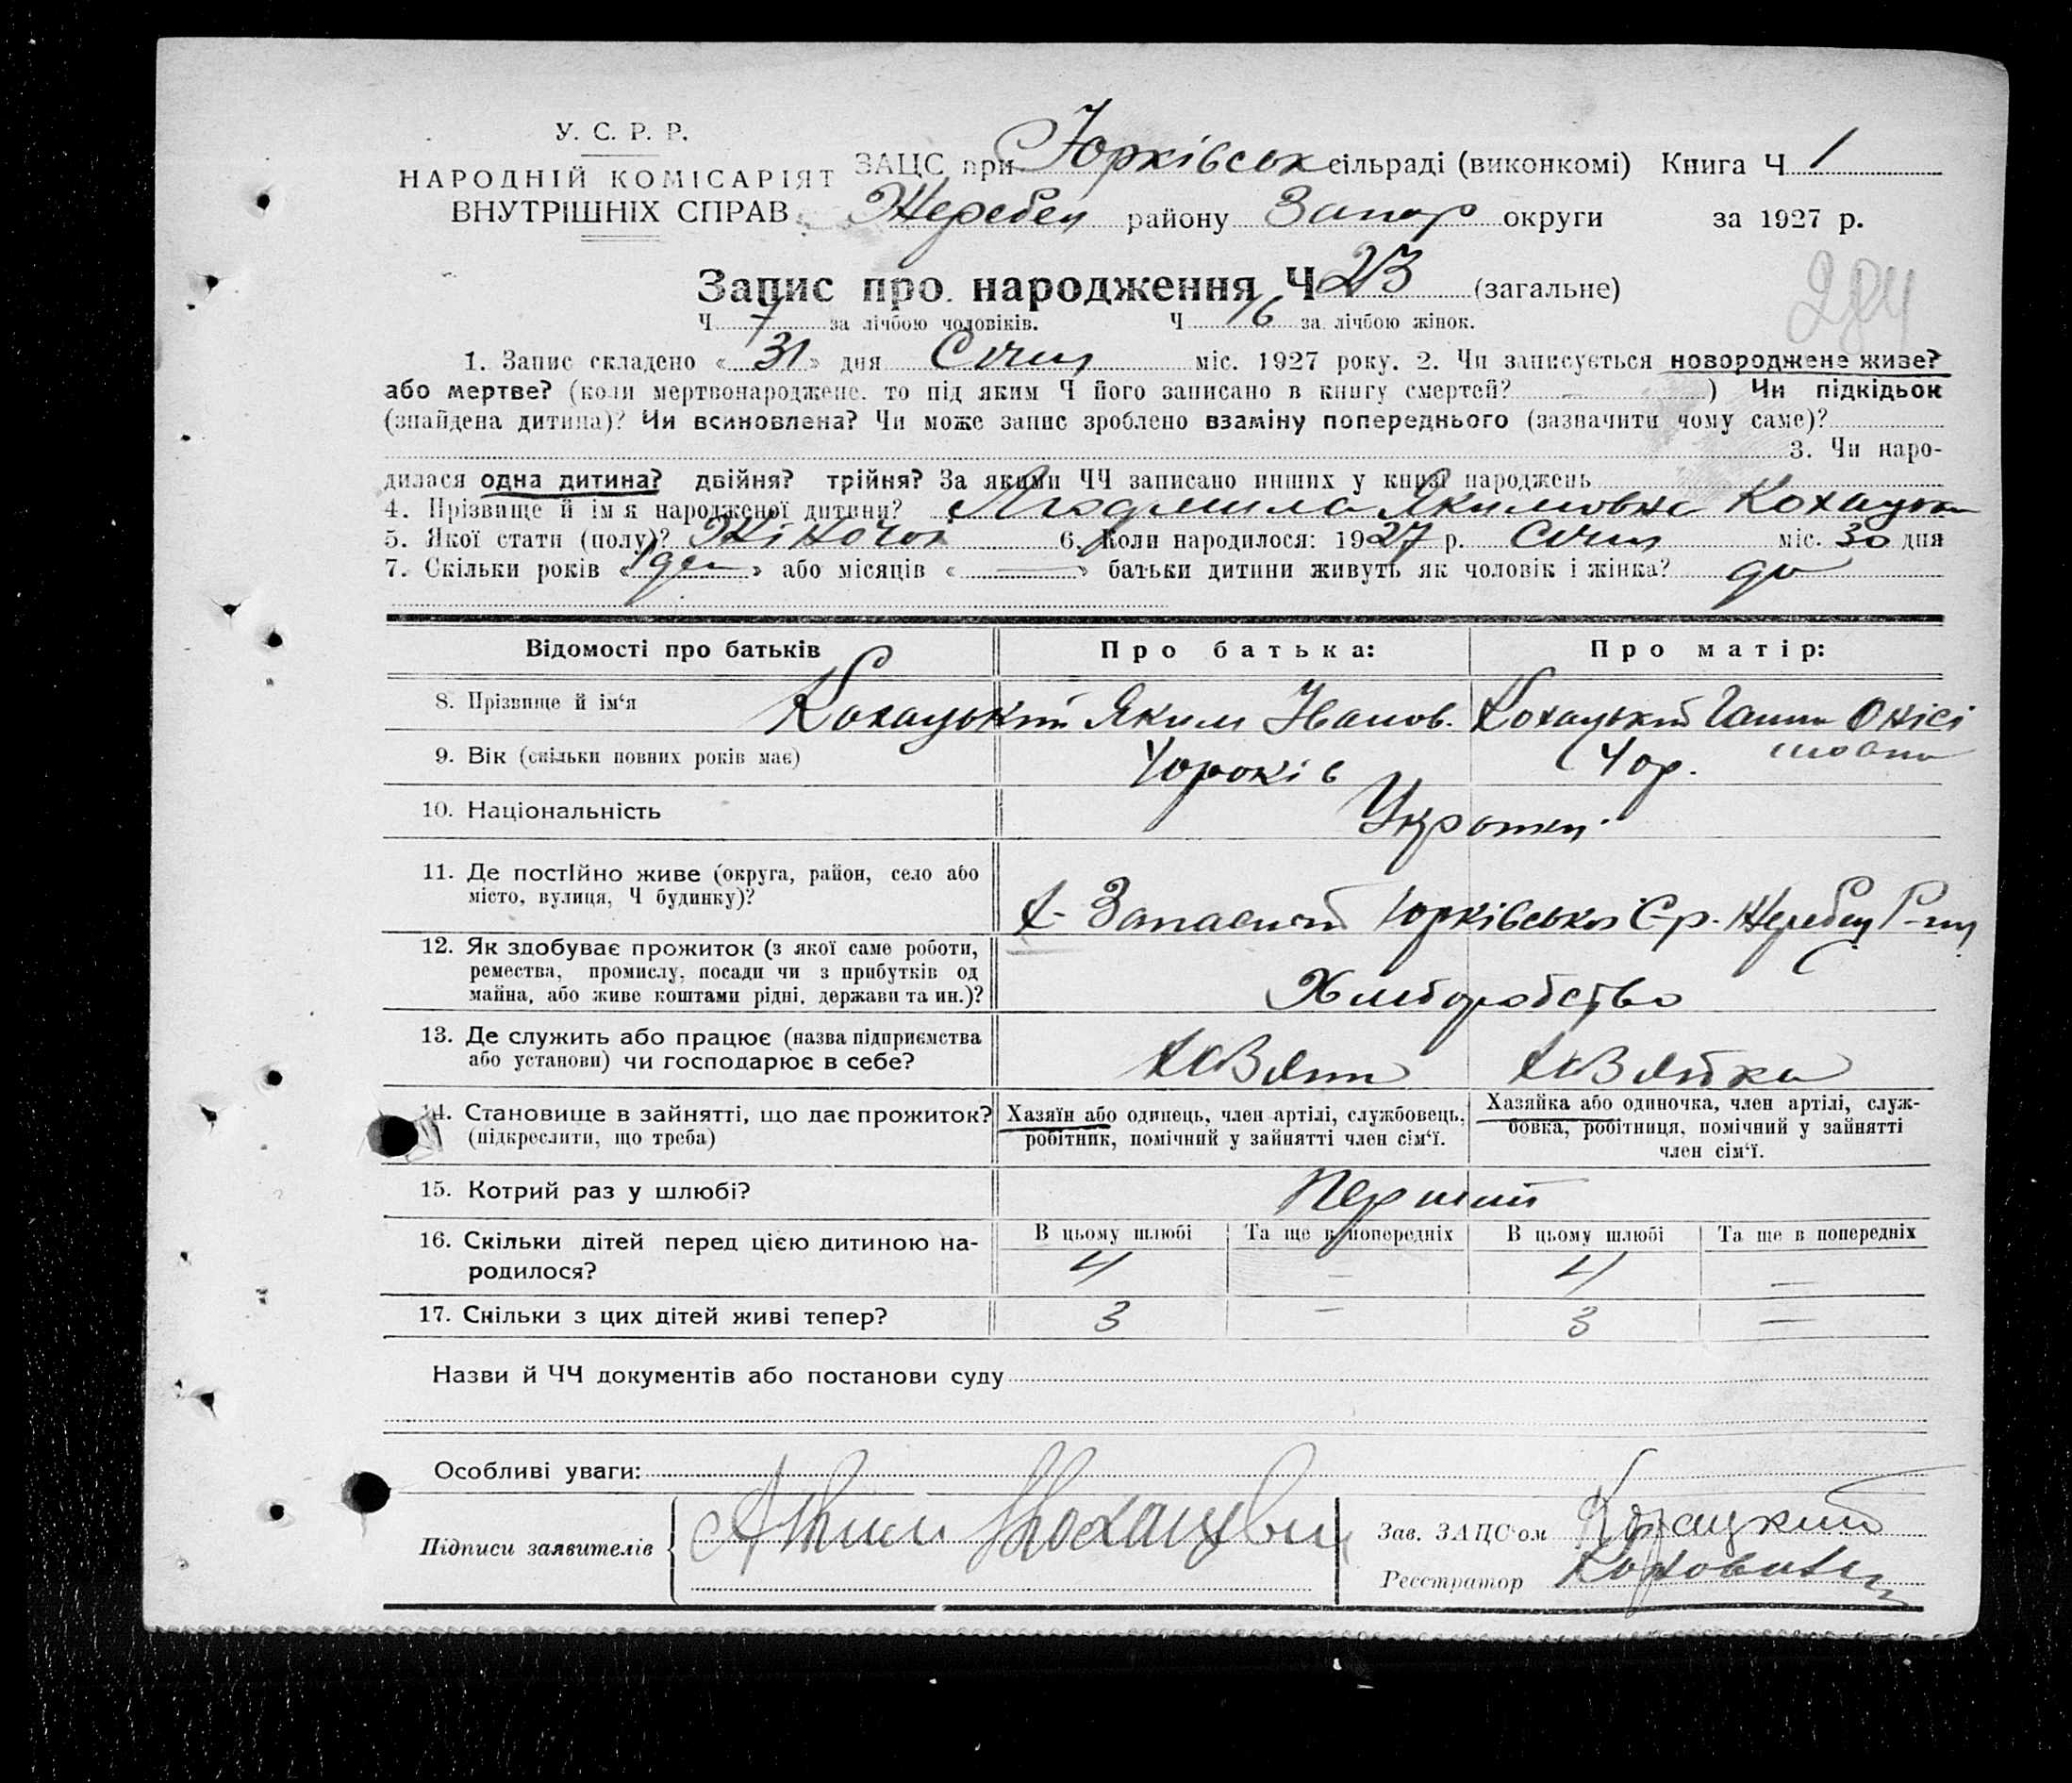 У. С. Р. Р.
НАРОДНІЙ КОМІСАРІЯТ
ВНУТРІШНІХ СПРАВ
ЗАЦС при Юрківськ сільраді (виконкомі) Книга Ч 1
Жеребец району Запор округи за 1927 р.
Запис про народження Ч 23 (загальне)
284
Ч 7 за лічбою чоловіків. Ч 16 за лічбою жінок.
1. Запис складено « 31 » дня Січня міс. 1927 року. 2. Чи записується новороджене живе?
або мертве? (коли мертвонароджене, то під яким Ч його записано в книгу смертей? – ) Чи підкідьок
(знайдена дитина)? Чи всиновлена? Чи може запис зроблено взаміну попереднього (зазначити чому саме)?
3. Чи наро-
дилася одна дитина? двійня? трійня? За якими ЧЧ записано инших у книзі народжень
4. Прізвище й ім'я народженої дитини? Людмила Якимовна Кохацька
5. Якої статі (полу)? Жіночої 6. Коли народилося: 1927 р. Січня міс. 30 дня
7. Скільки років « » або місяців « — » батьки дитини живуть як чоловік і жінка?
Відомості про батьків Про батька: Про матір:
8. Прізвище й ім'я Кохацький Яким Іванов. Кохацький Ганна Онісі
9. Вік (скільки повних років має) 40 років 40 р.
10. Національність
11. Де постійно живе (округа, район, село або
місто, вулиця, Ч будинку)?
Х- Запасний Юрківської С-р. Жеребец Р-ну
12. Як здобуває прожиток (з якої саме роботи,
ремества, промислу, посади чи з прибутків од
майна, або живе коштами рідні, держави та ин.)?
Хліборобство
13. Де служить або працює (назва підприємства
або установи) чи господарює в себе?
14. Становище в зайнятті, що дає прожиток?
(підкреслити, що треба)
Хазяїн або одинець, член артілі, службовець,
робітник, помічний у зайнятті член сім'ї.
Хазяйка або одиночка, член артілі, служ-
бовка, робітниця, помічний у зайнятті
член сім'ї.
15. Котрий раз у шлюбі? Перший
16. Скільки дітей перед цією дитиною на-
родилося?
В цьому шлюбі Та ще в попередніх В цьому шлюбі Та ще в попередніх
4 – 4 –
17. Скільки з цих дітей живі тепер? 3 – 3 –
Назви й ЧЧ документів або постанови суду
Особливі уваги:
Підписи заявителів
Зав. ЗАЦС'ом Кохацкий
Реєстратор